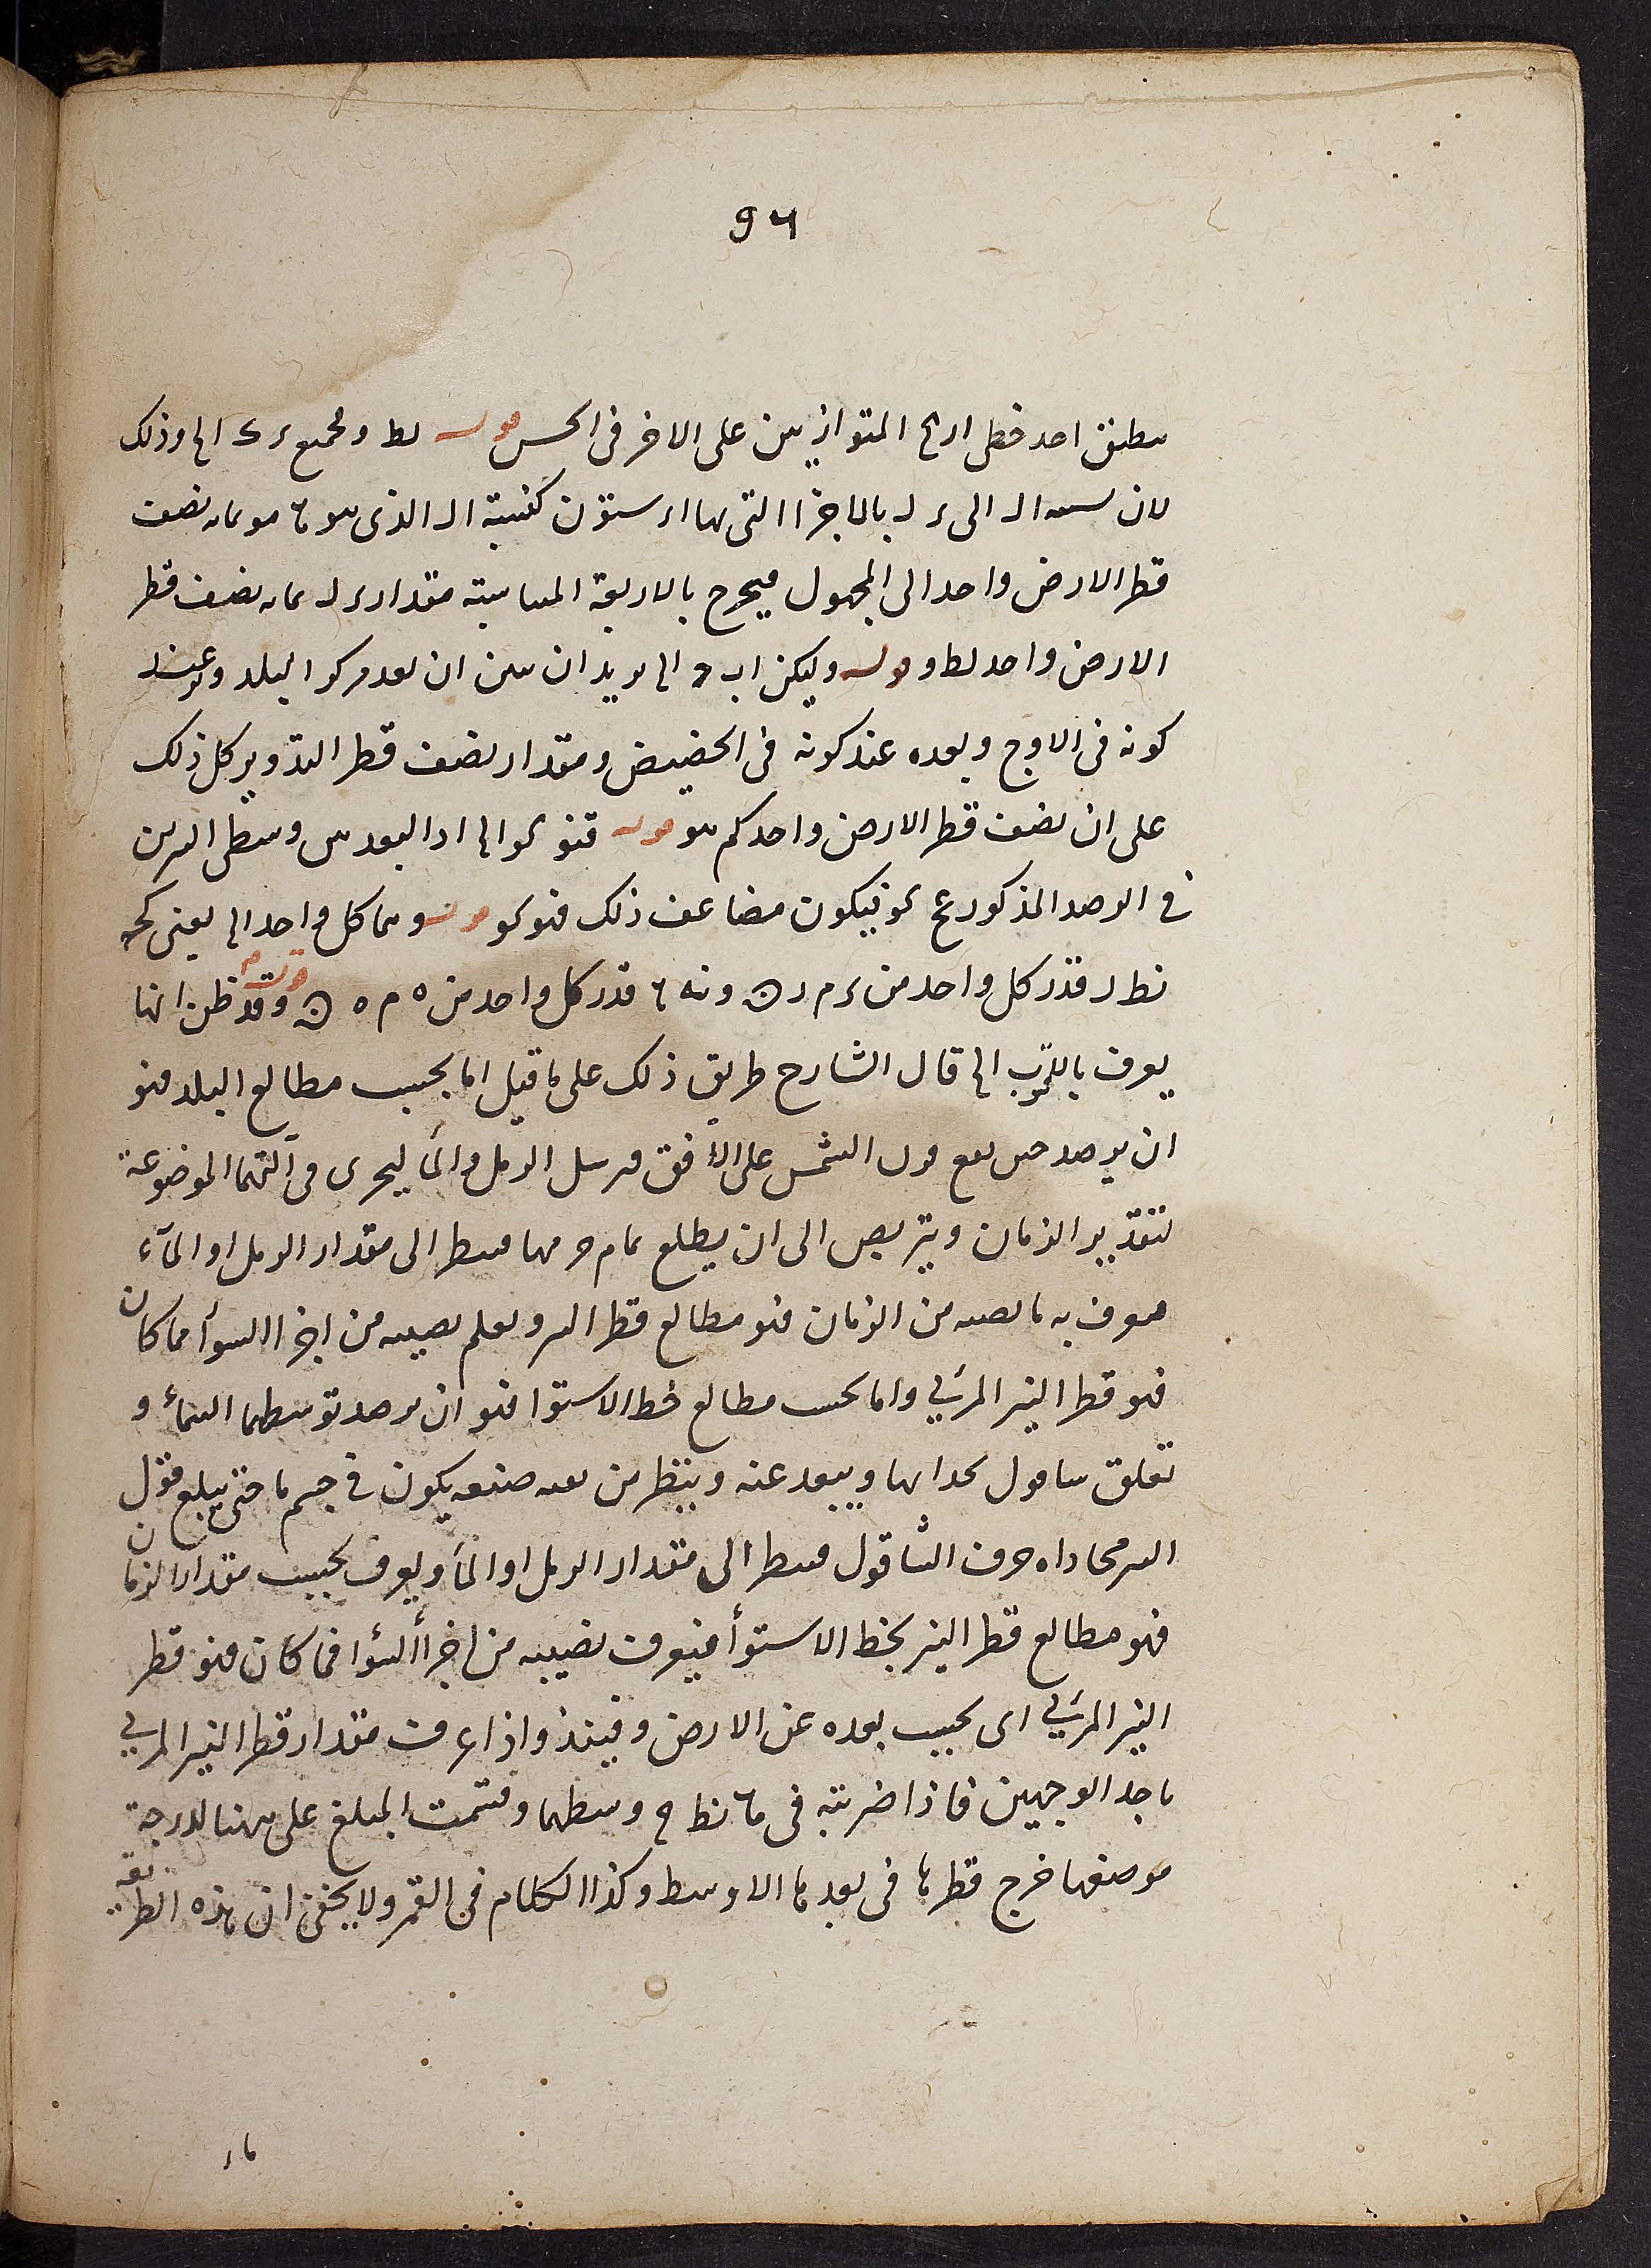 94
ينطبق احد خطى ا ر ح المتوازيين على الاخر فى الحس قوله لط و مجموع ر ك الخ و ذلك
لان نسبة ا ل الى ر ل بالاجزا التى بها ا ر ستون كنسبة ا ل الذى هو ما به نصف
قطر الارض واحد الى المجهول فيخرج بالاربعة المتناسبة مقدار ر ل بما به نصف قطر
الارض واحد لط و قوله وليكن ا ب ح الخ يريد ان يبين ان بعد مركز البلد وعند
كونه فى الاوج وبعده عند كونه فى الحضيض ومقدار نصف قطر التدوير كل ذلك
على ان نصف قطر الارض واحد كم هو قوله فنو كو الخ اذ البعد بين وسطى النيرين
فى الرصد المذكور عح كو فيكون مضاعف ذلك قنو كو قوله وهما كل واحد الخ يعنى كح
نط ر قدر كل واحد من ر م ر ن ونه قدر كل واحد من ه م ه ن قوله وقد ظن انها
يعرف بالتقريب الخ قال الشارح طريق ذلك على ما قيل اما بحسب مطالع البلد فهو
ان يرصد حين يقع قول الشمس على الافق فيرسل الرمل والمأ ليجرى فى آلتهما الموضوعة
لتقدير الزمان ويتربص الى ان يطلع تمام جرمها فينظر الى مقدار الرمل او المآء
فيعرف به ما نصيبه من الزمان فهو مطالع قطر النير ويعلم نصيبه من اجزا السوأ فما كان
فهو قطر النير المرئي واما بحسب مطالع خط الاستوا فهو ان يرصد توسطهما السمأ و
تعلق شاقول بحذائها ويبعد عنه وينظر من ثقبة ضيقة يكون فى جسم ما حتى يبلغ قول
النير محاذاة حرف الشاقول فينظر الى مقدار الرمل او المأ ويعرف بحسب مقدار الزمان
فهو مطالع قطر النير بخط الاستوأ فيعرف نصيبه من اجزأ السوا فما كان فهو قطر
النير المرئي اى بحسب بعده عن الارض وحينئذ واذا عرفت مقدار قطر النير المرئي
باحد الوجهين فاذا ضربته فى ما نط ح وسطهما وقسمت المبلغ على بهتها لدرجة
موضعها خرج قطرها فى بعدها الاوسط وكذا الكلام فى القمر ولا يخفى ان هذه الطريقة